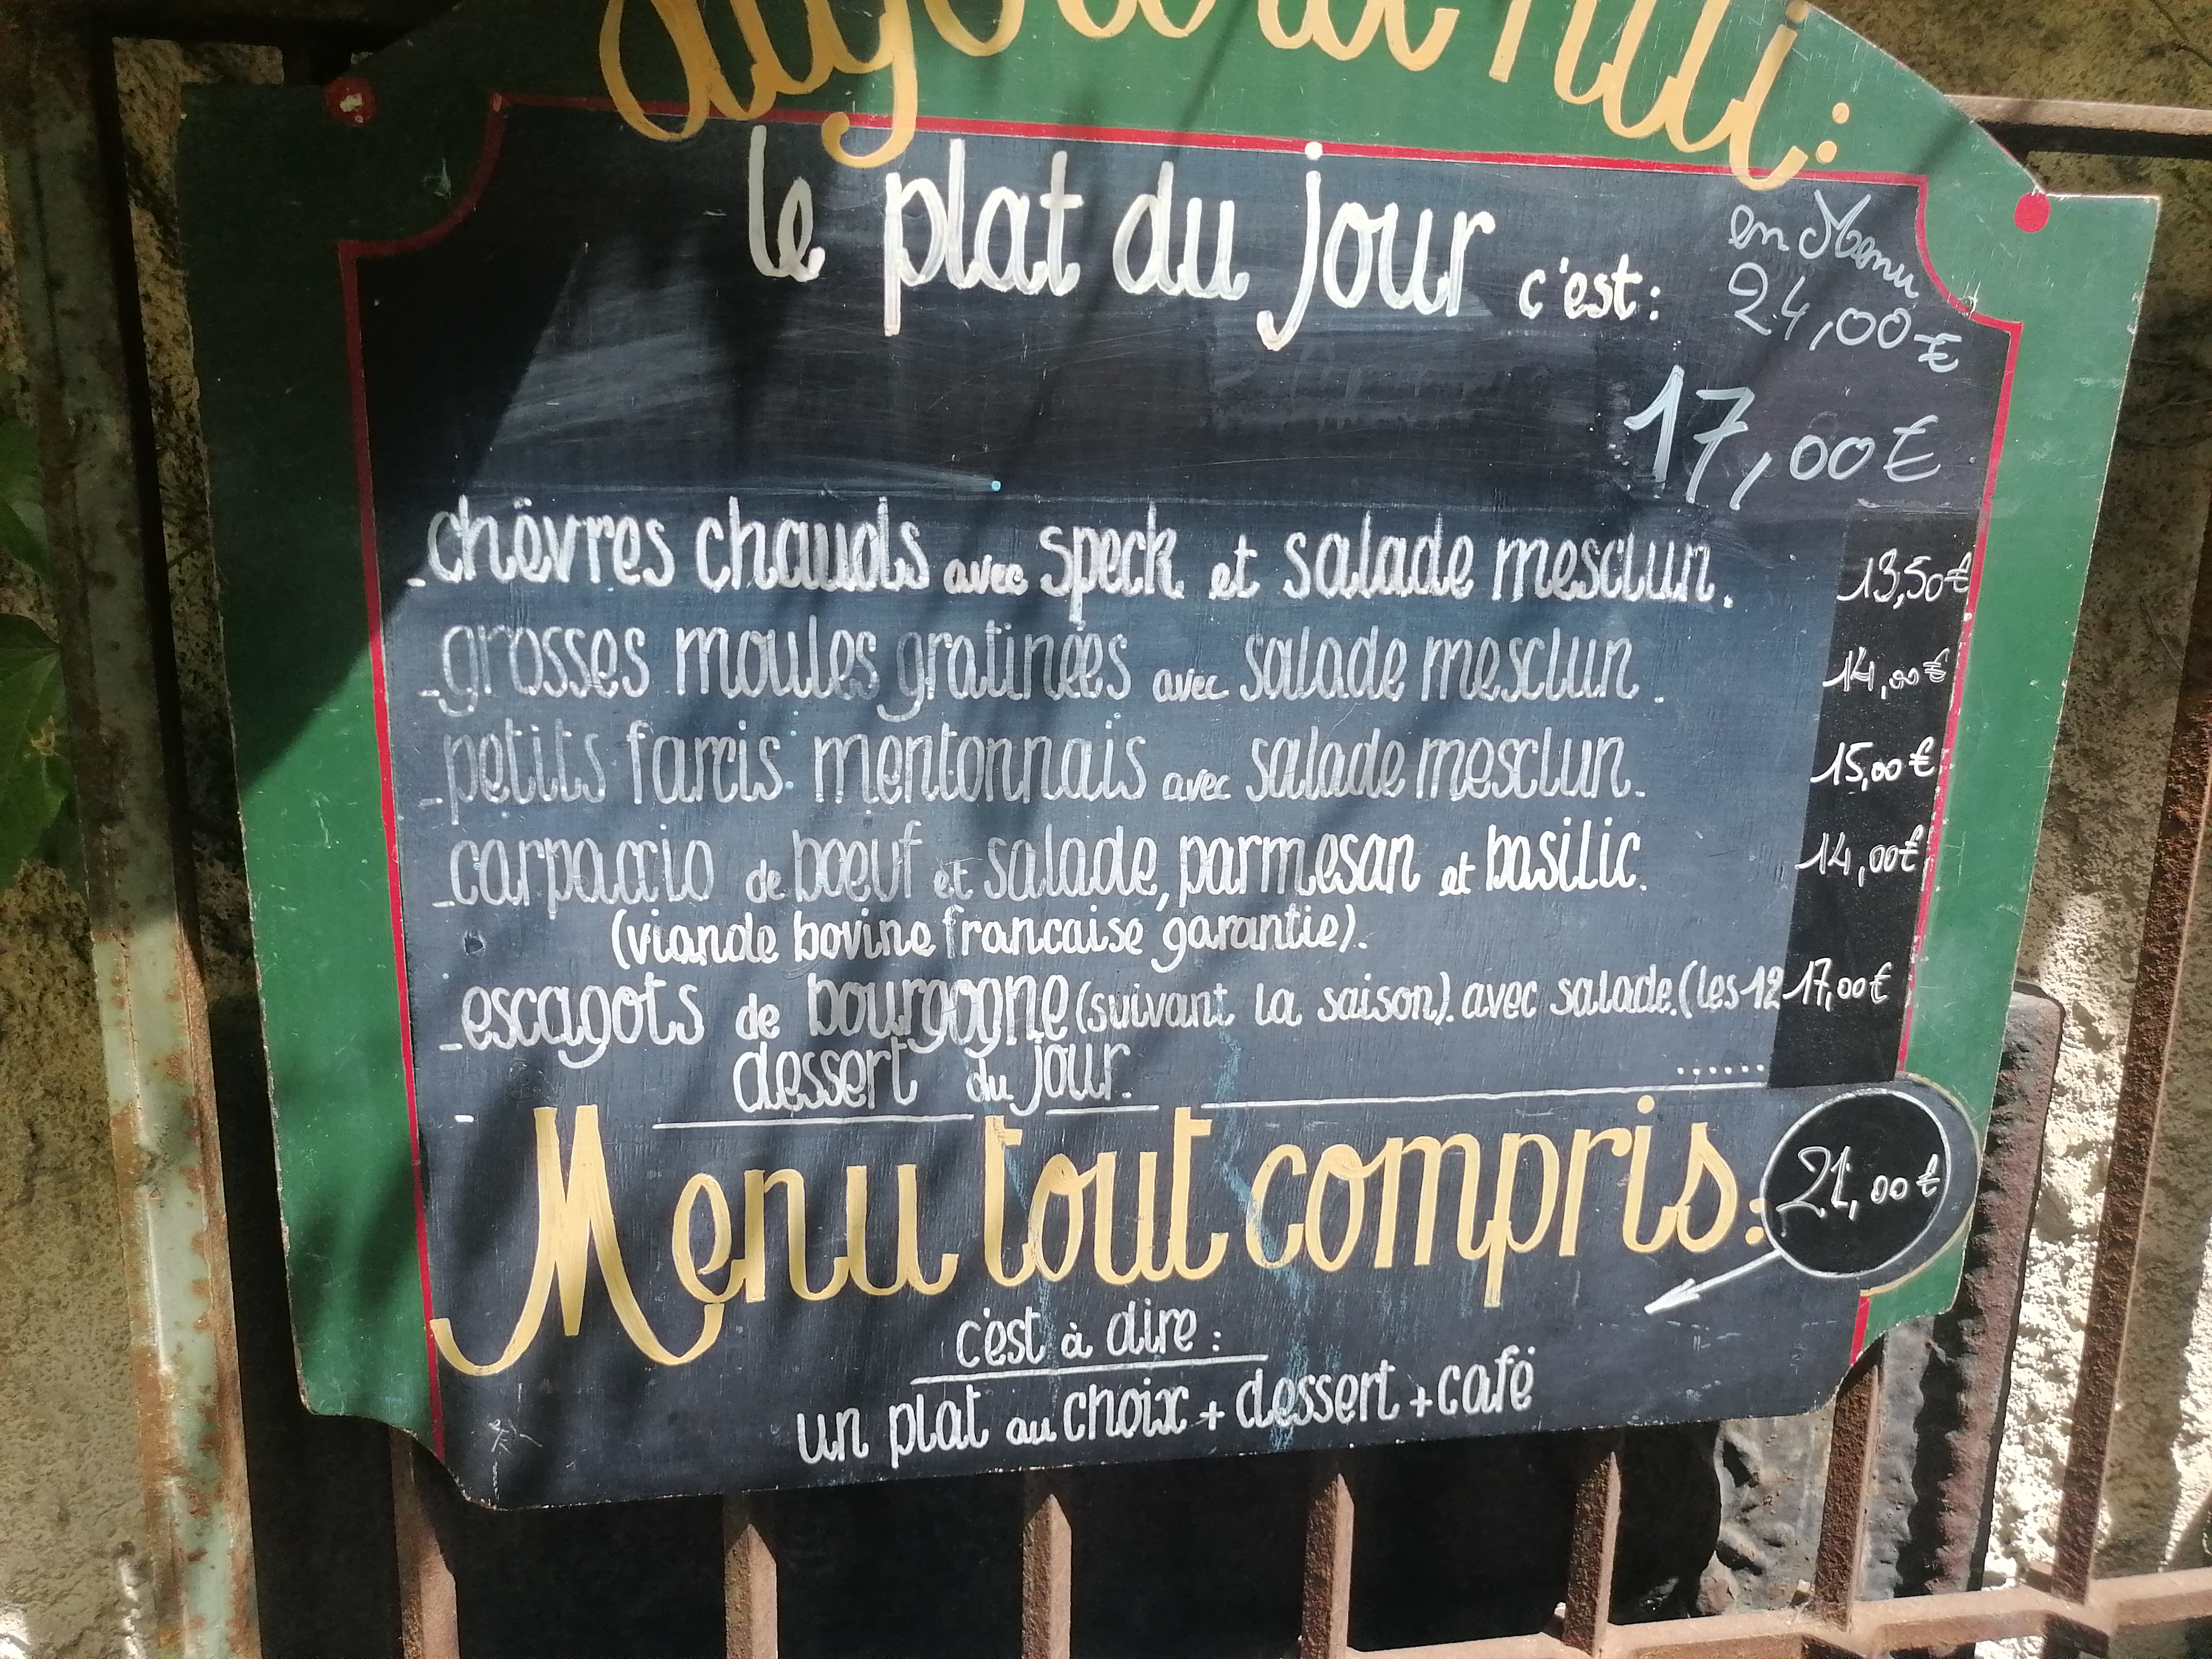 aujourd'hui:
le plat du jour c'est:
en Menu
24,00€
17,00€
-chèvres chauds avec speck et salade mesclun. 13,50€
-grosses moules gratinées avec salade mesclun. 14,00€
-petits farcis mentonnais avec salade mesclun. 15,00€
-carpaccio de boeuf et salade, parmesan et basilic. 14,00€
(viande bovine francaise garantie).
-escagots de bourgogne (suivant la saison). avec salade. (les 12 17,00€
dessert du jour. ......
Menu tout compris: 21,00€
c'est à dire:
un plat au choix + dessert + café